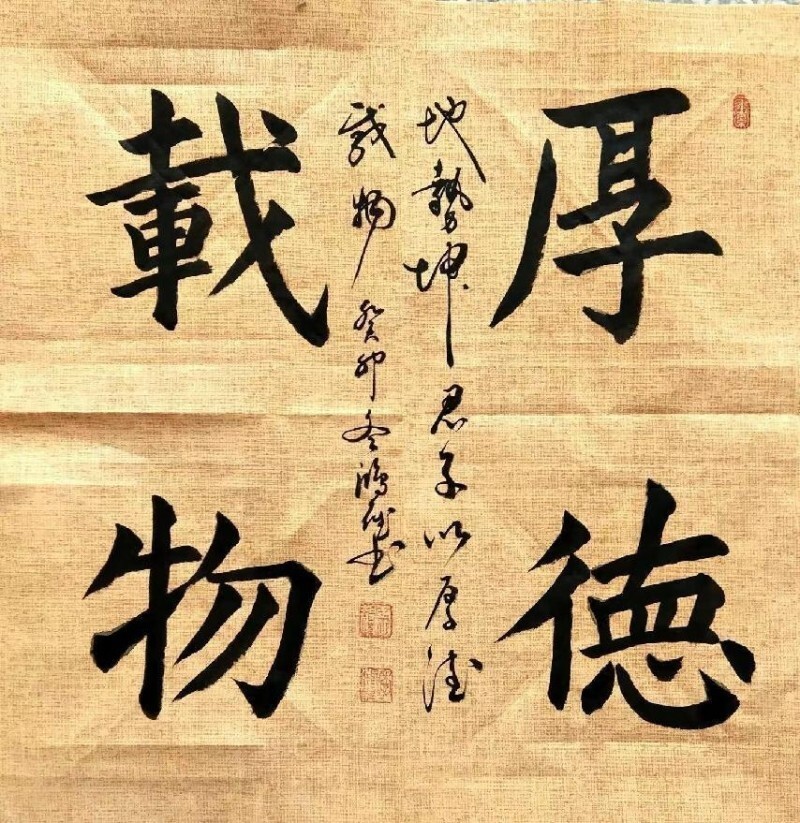 厚德
載物
地勢坤君子以厚德
載物癸卯冬鴻雁書